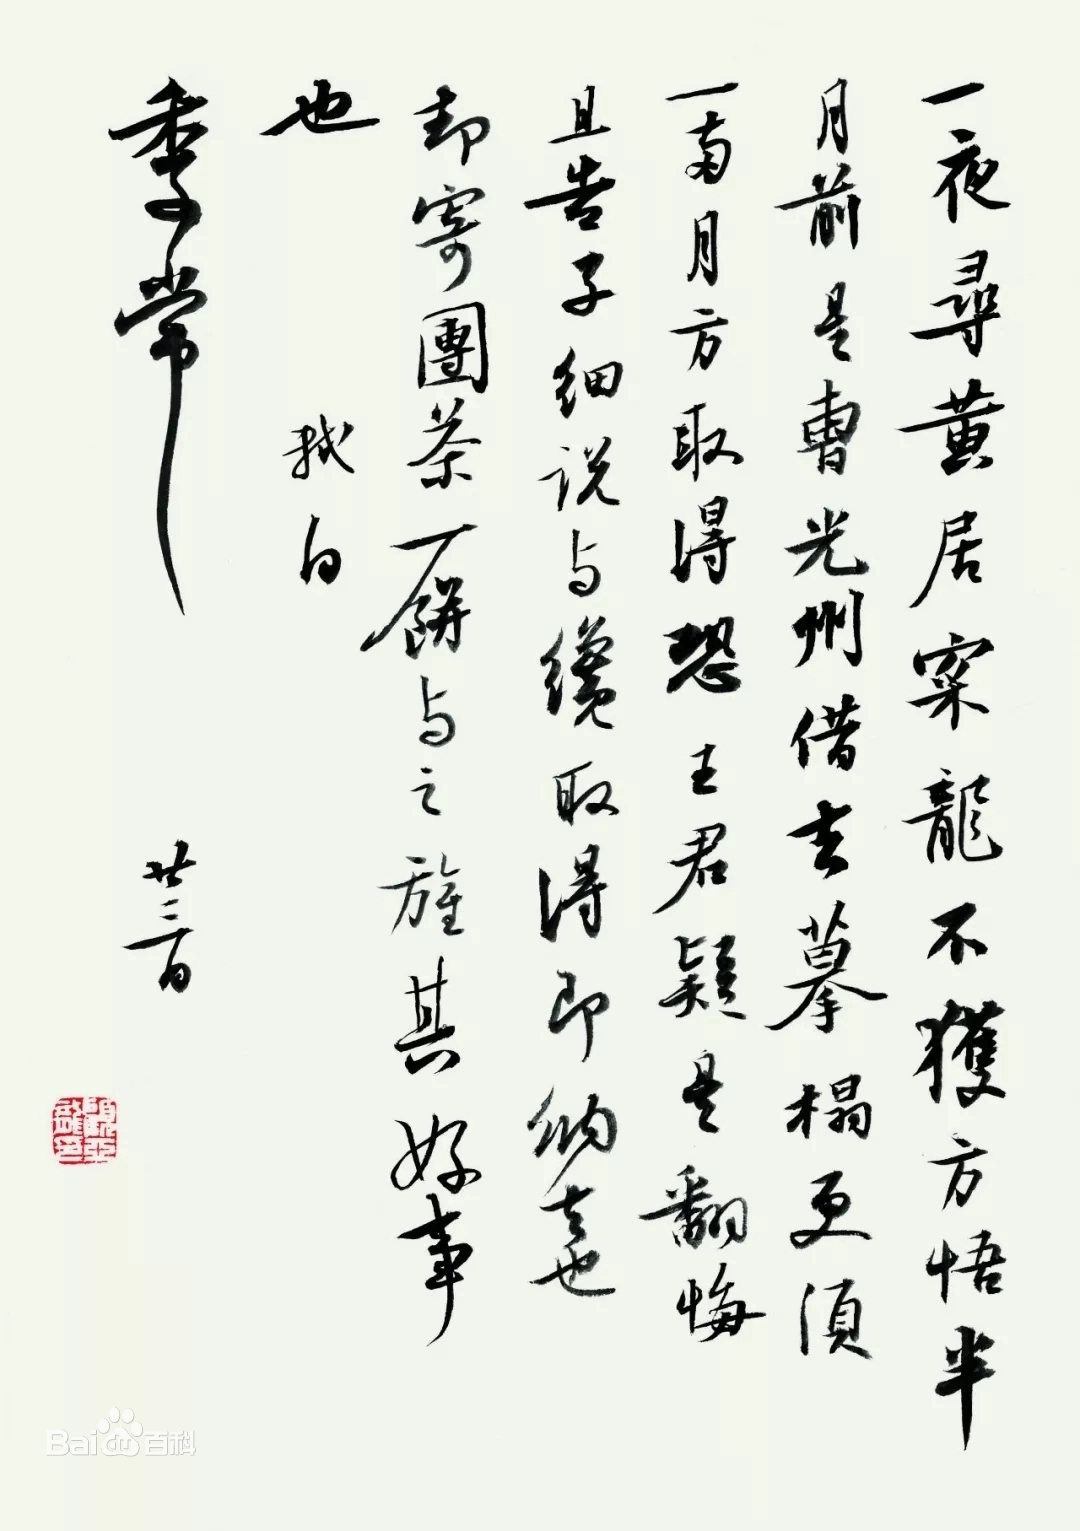 一夜尋黃居寀龍不獲方悟半
月前是曹光州借去摹榻更須
一兩月方取得恐王君疑是翻悔
且告子細説与纔取得即納去也
却寄團茶一餅与之旌其好事
也 軾白
季常 廿三日
Bai百科